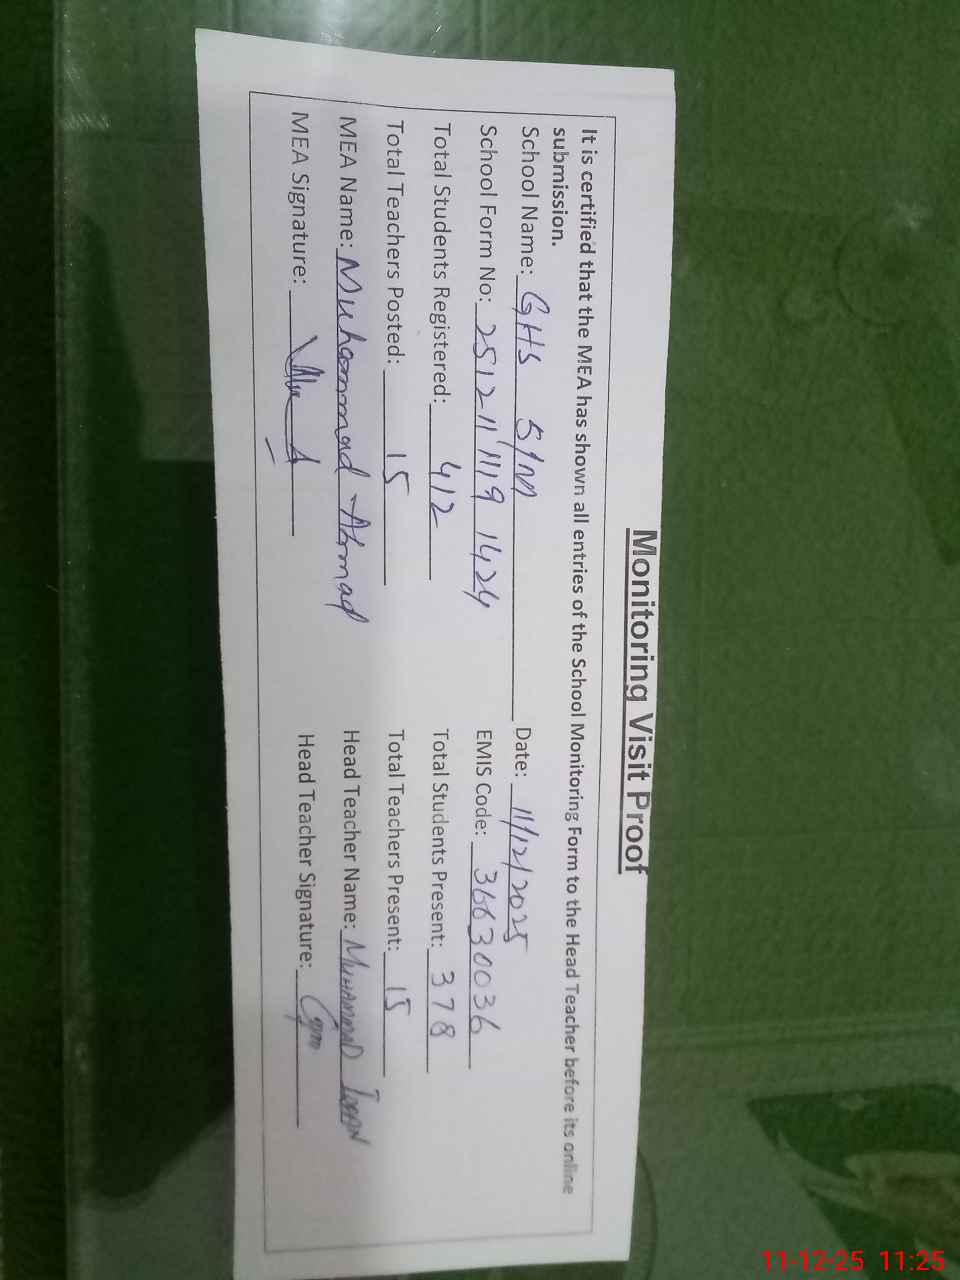 Monitoring Visit Proof
It is certified that the MEA has shown all entries of the School Monitoring Form to the Head Teacher before its online
submission.
School Name: GHS 5/M Date: 11/12/2025
School Form No: 25121111191424 EMIS Code: 36630036
Total Students Registered: 412 Total Students Present: 378
Total Teachers Posted: 15 Total Teachers Present: 15
MEA Name: Muhammad Ahmad Head Teacher Name: MUHAMMAD
MEA Signature: Head Teacher Signature:
11-12-25 11:25